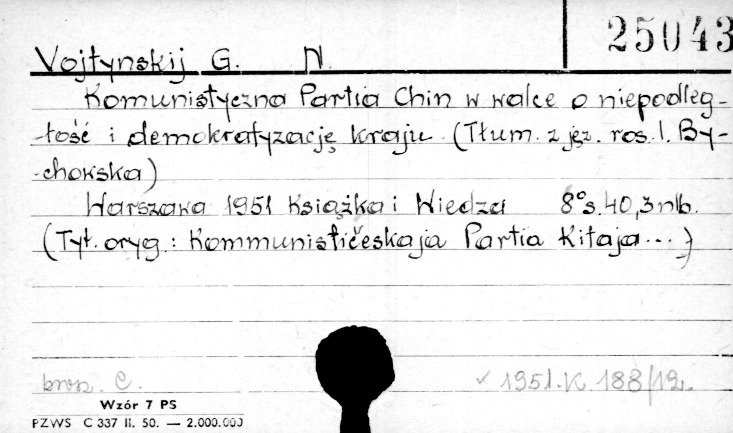 25043
Vojtynskij G. N.
Komunistyczna Partia Chin w walce o niepodleg-
-łość i demokratyzację kraju. (Tłum. z jęz. ros. I. By-
-chowska)
Warszawa 1951 Książka i Wiedza 8° s. 40, 3 nlb.
(Tyt. oryg.: Kommunističeskaja Partia Kitaja...)
C. ✓ 1951.K.188/12.
Wzór 7 PS
PZWS C 337 II. 50. — 2.000.000